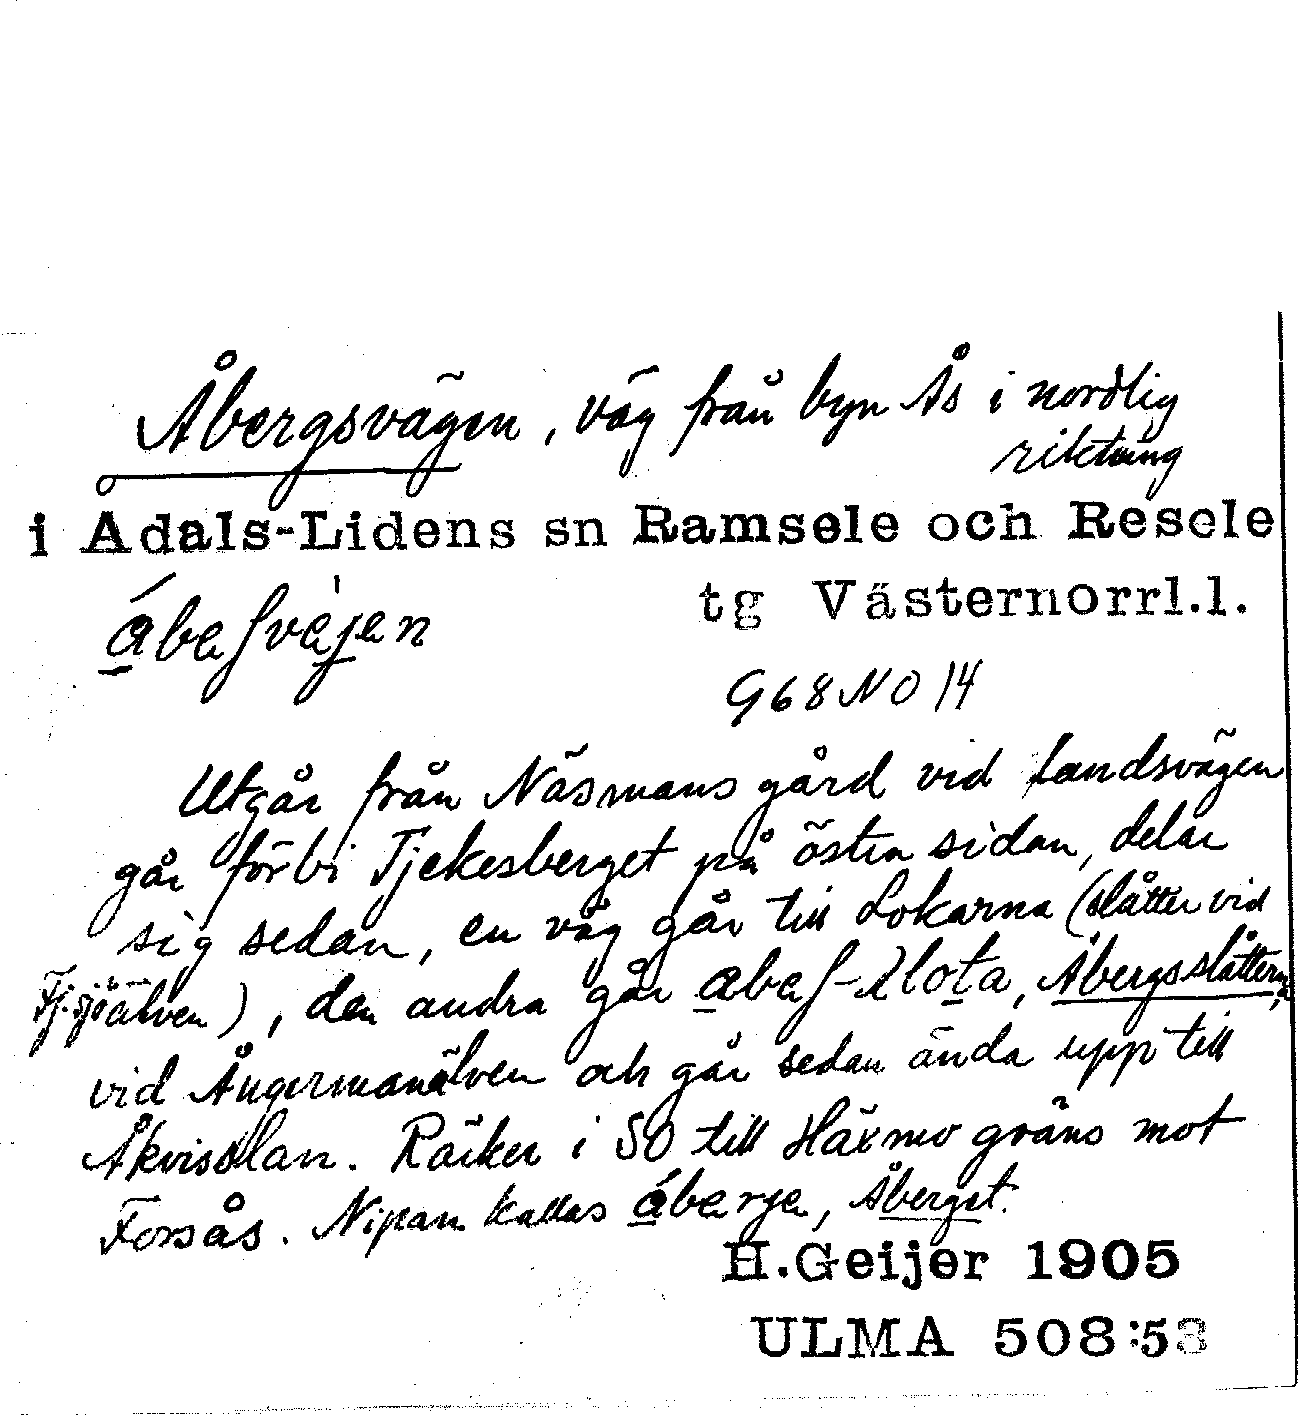 Åbergsvägen, väg från byn Ås i nordlig
riktning
i Adals-Lidens sn Ramsele och Resele
tg Västernorrl.l.
ábeʃvèjen
968 NO 14
Utgår från Näsmans gård vid landsvägen
går förbi Tjekesberget på östra sidan, delar
sig sedan, en väg går till Lokarna (slåtter vid
Fj.sjöälven), den andra går abeʃ-slota, Åbergsslåtterna,
vid Ångermanälven och går sedan ända upp till
Åkvisslan. Räcker i SO till Häxmo gräns mot
Forsås. Nipan kallas áberje, Åberget.
H.Geijer 1905
ULMA 508:58